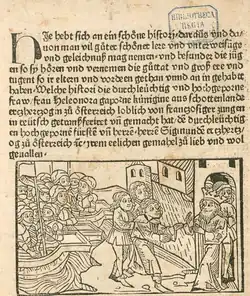 BIBLIOTHECA
REGIA
Hie hebt sich an ein schöne histori dar auß vnd da
uon man vil güter schöner lere vnd vnterweysung
vnd geleichnuß mag nemen vnd besunder die iun
gen so sy hören vnd vernemen die güttat vnd groß ere vnd
tugent so ir eltern vnd vordern gethan vnnd an in gehabt
haben Welche histori die durchleüchtig vnd hochgeporne
fraw fraw Heleonora geporne künigine auß schottenland
ertzhertzogin zů österreich loblich von franzosiger zungen
in teütsch getransferiert vnd gemacht hat de durchleüchtig
en hochgeporne fürsten vnd herren herren Sigmund ertzhertz
og zů österreich irem elichen gemahel zů lieb vnd wol
geuallen